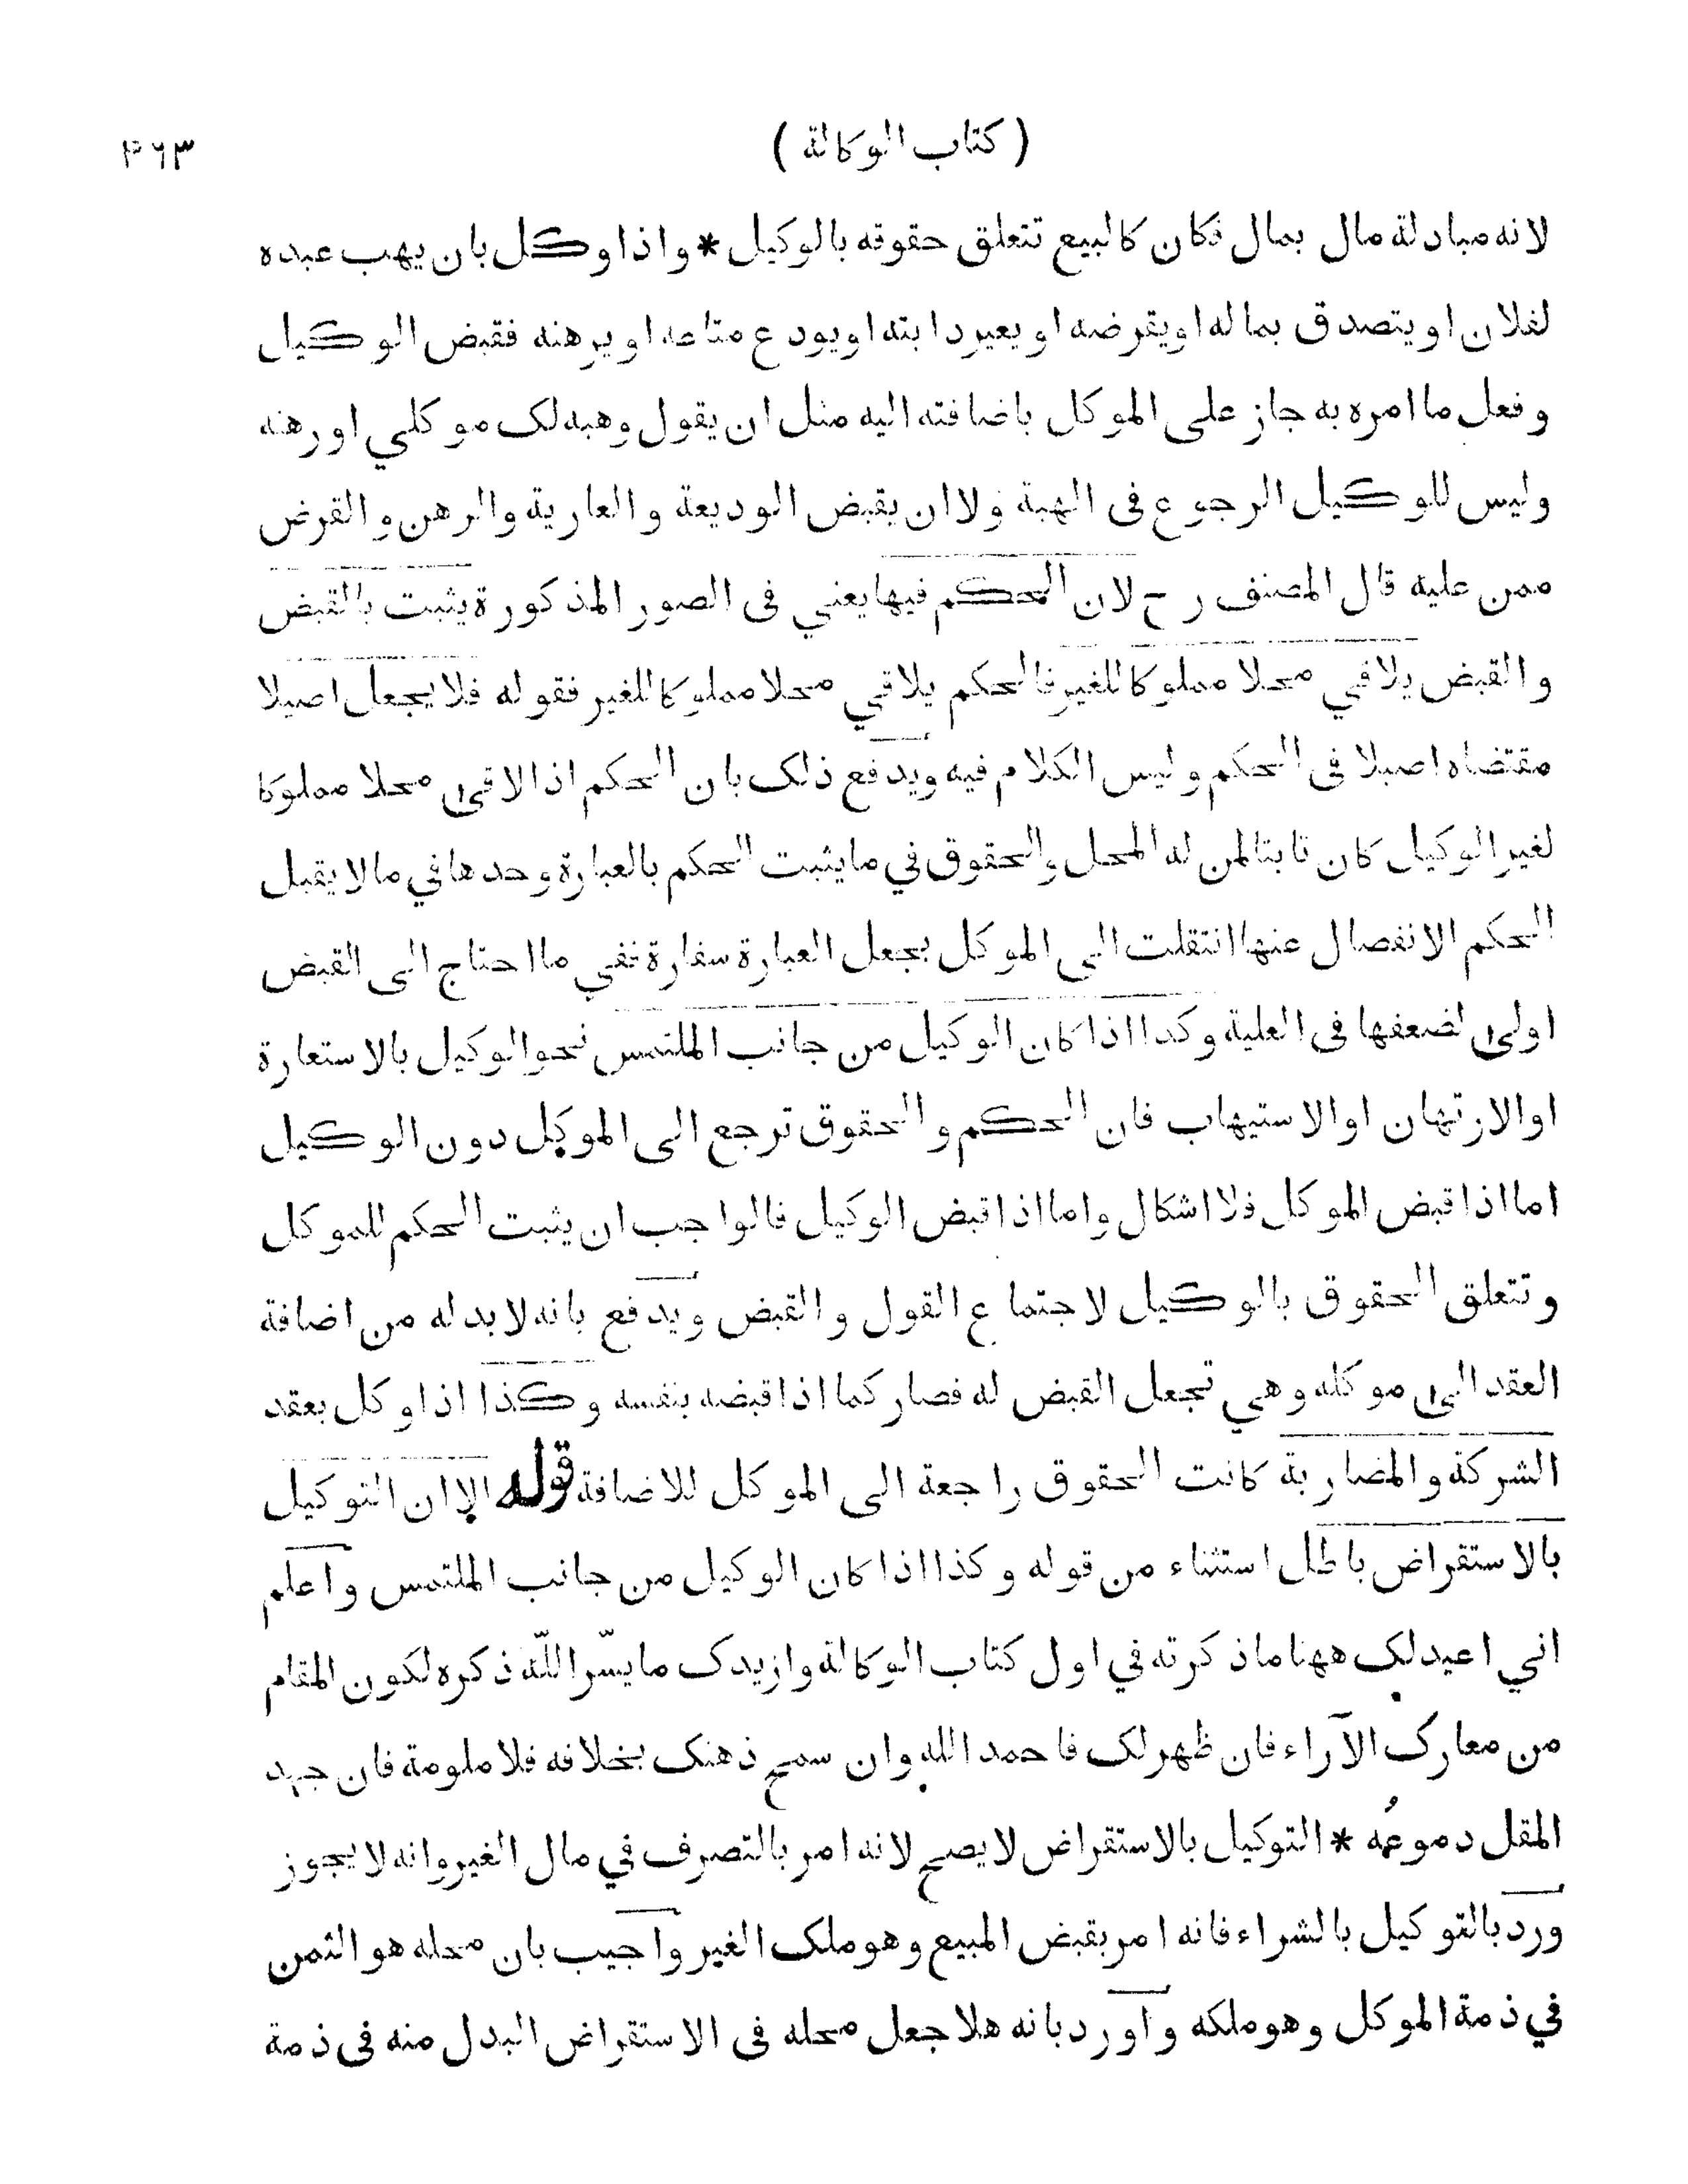 ( كتاب الوكالة ) ٤٦٣
لانه مبادلة مال بمال فكان كالبيع تتعلق حقوقه بالوكيل * واذا وكل بان يهب عبده
لفلان او يتصدق بماله او يقرضه او يعير دابته او يودع متاعه او يرهنه فقبض الوكيل
وفعل ما امره به جاز على الموكل باضافته اليه مثل ان يقول وهبه لك موكلي او رهنه
وليس للوكيل الرجوع فى الهبة ولا ان يقبض الوديعة والعارية والرهن والقرض
ممن عليه قال المصنف رح لان الحكم فيها يعني فى الصور المذكورة يثبت بالقبض
والقبض يلاقي محلا مملوكا للغير فالحكم يلاقي محلا مملوكا للغير فقوله فلا يجعل اصيلا
مقتضاه اصيلا فى الحكم وليس الكلام فيه ويدفع ذلك بان الحكم اذا لاقى محلا مملوكا
لغير الوكيل كان ثابتا لمن له المحل والحقوق في ما يثبت الحكم بالعبارة وحدها في ما لا يقبل
الحكم الانفصال عنها انتقلت الى الموكل بجعل العبارة سفارة ففي ما احتاج الى القبض
اولى لضعفها فى العلية وكذا اذا كان الوكيل من جانب الملتمس نحو الوكيل بالاستعارة
او الارتهان او الاستيهاب فان الحكم والحقوق ترجع الى الموكل دون الوكيل
اما اذا قبض الموكل فلا اشكال واما اذا قبض الوكيل فالواجب ان يثبت الحكم للموكل
وتتعلق الحقوق بالوكيل لاجتماع القول والقبض ويدفع بانه لا بد له من اضافة
العقد الى موكله وهي تجعل القبض له فصار كما اذا قبضه بنفسه وكذا اذا وكل بعقد
الشركة والمضاربة كانت الحقوق راجعة الى الموكل للاضافة قوله الا ان التوكيل
بالاستقراض باطل استثناء من قوله وكذا اذا كان الوكيل من جانب الملتمس واعلم
اني اعيد لك ههنا ما ذكرته في اول كتاب الوكالة وازيدك ما يسّر اللّه ذكره لكون المقام
من معارك الآراء فان ظهر لك فاحمد الله وان سمح ذهنك بخلافه فلا ملومة فان جهد
المقل دموعُه * التوكيل بالاستقراض لا يصح لانه امر بالتصرف في مال الغير وانه لا يجوز
ورد بالتوكيل بالشراء فانه امر بقبض المبيع وهو ملك الغير واجيب بان محله هو الثمن
في ذمة الموكل وهو ملكه واورد بانه هلا جعل محله فى الاستقراض البدل منه فى ذمة